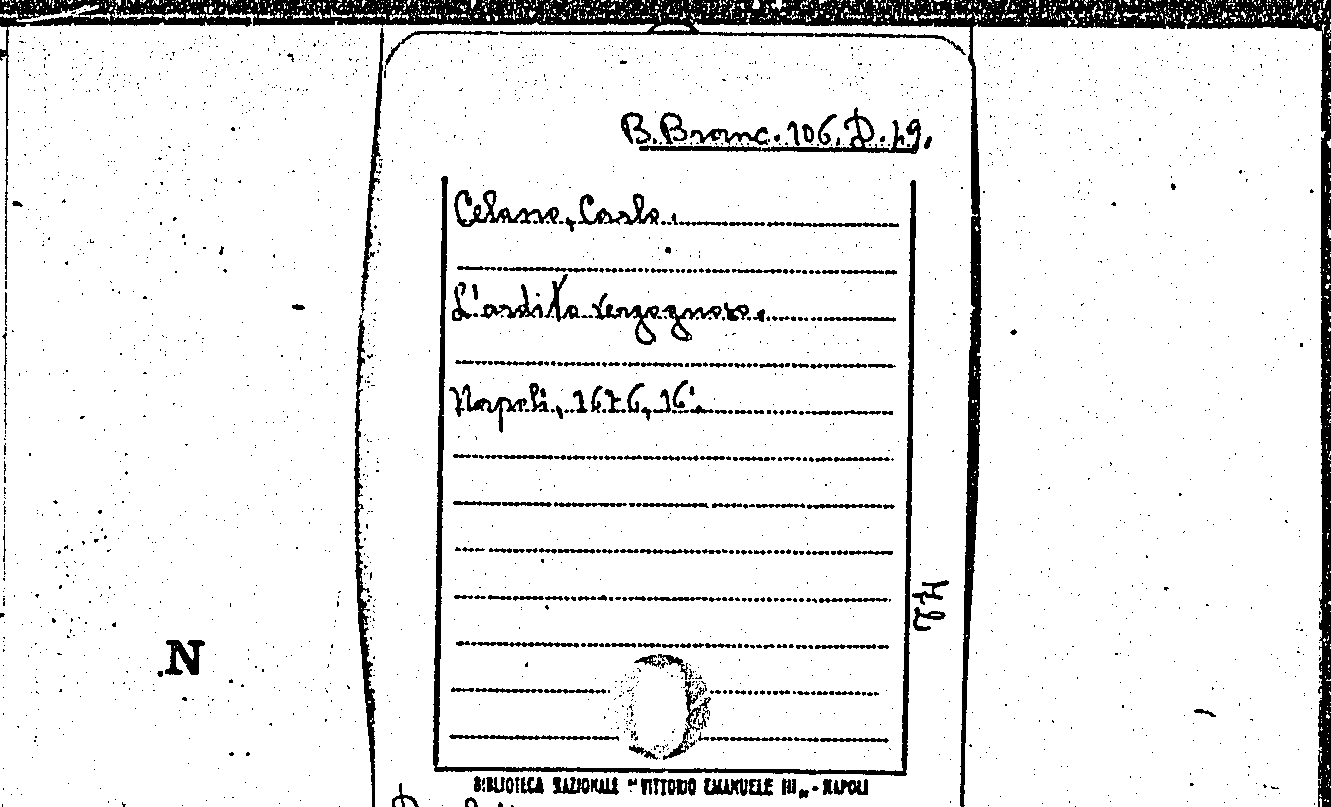 B. Branc. 106. D. 49.
Celano, Carlo.
L'ardito vergognoso.
Napoli, 1676, 16°.
42
N
BIBLIOTECA NAZIONALE "VITTORIO EMANUELE III" - NAPOLI